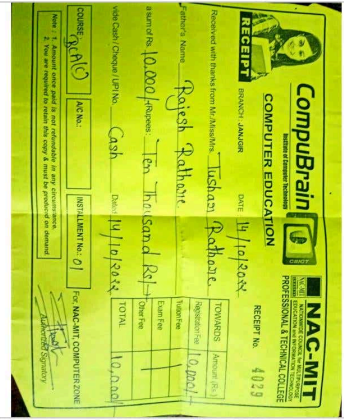 CompuBrain
Institute of Computer Technology
CBICT
NAC-MIT
NATIONWIDE COUNCIL for MULTIPURPOSE
EDUCATION and INFORMATION TECHNOLOGY
PROFESSIONAL & TECHNICAL COLLEGE
COMPUTER EDUCATION
RECEIPT
BRANCH : JANJGIR
DATE 14/10/2022
RECEIPT No. 4039
Received with thanks from Mr./Miss/Mrs. Tushar Rathore
Father's Name Rajesh Rathore
a sum of Rs. 10,000/- Rupees : Ten Thousand Rs/-
vide Cash / Cheque / UPI No. Cash Dated 14/10/2022
TOWARDS Amount (Rs.)
Registration Fee 10,000/-
Tution Fee
Exam Fee
Other Fee
TOTAL 10,000/-
COURSE : BCA
A/C No.:
INSTALLMENT No.: 01
For, NAC-MIT, COMPUTER ZONE
Note : 1. Amount once paid is not refundable in any circumstance.
2. You are required to retain this copy & must be produced on demand.
Authorised Signatory